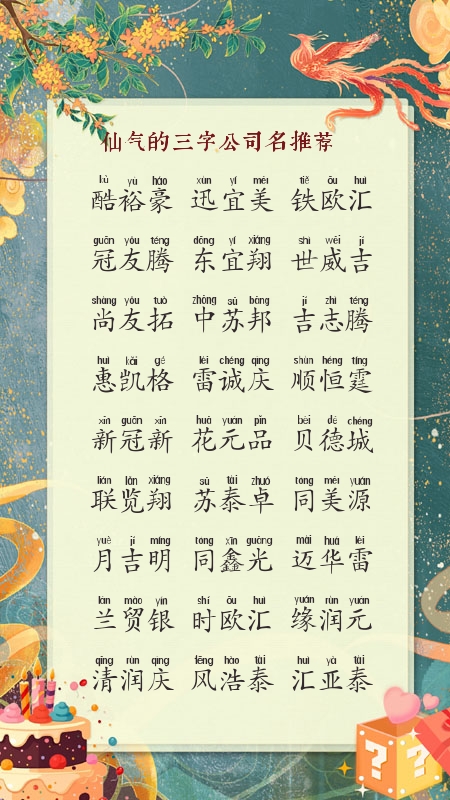 仙气的三字公司名推荐
kù yù háo xùn yí měi tiě ōu huì
酷裕豪 迅宜美 铁欧汇
guān yǒu téng dōng yí xiáng shì wēi jí
冠友腾 东宜翔 世威吉
shàng yǒu tuò zhōng sū bāng jí zhì téng
尚友拓 中苏邦 吉志腾
huì kǎi gé léi chéng qìng shùn héng tíng
惠凯格 雷诚庆 顺恒霆
xīn guān xīn huā yuán pǐn bèi dé chéng
新冠新 花元品 贝德城
lián lǎn xiáng sū tài zhuó tóng měi yuán
联览翔 苏泰卓 同美源
yuè jí míng tóng xīn guāng mài huá léi
月吉明 同鑫光 迈华雷
lán mào yín shí ōu huì yuán rùn yuán
兰贸银 时欧汇 缘润元
qīng rùn qìng fēng hào tài huì yà tài
清润庆 风浩泰 汇亚泰
? ?